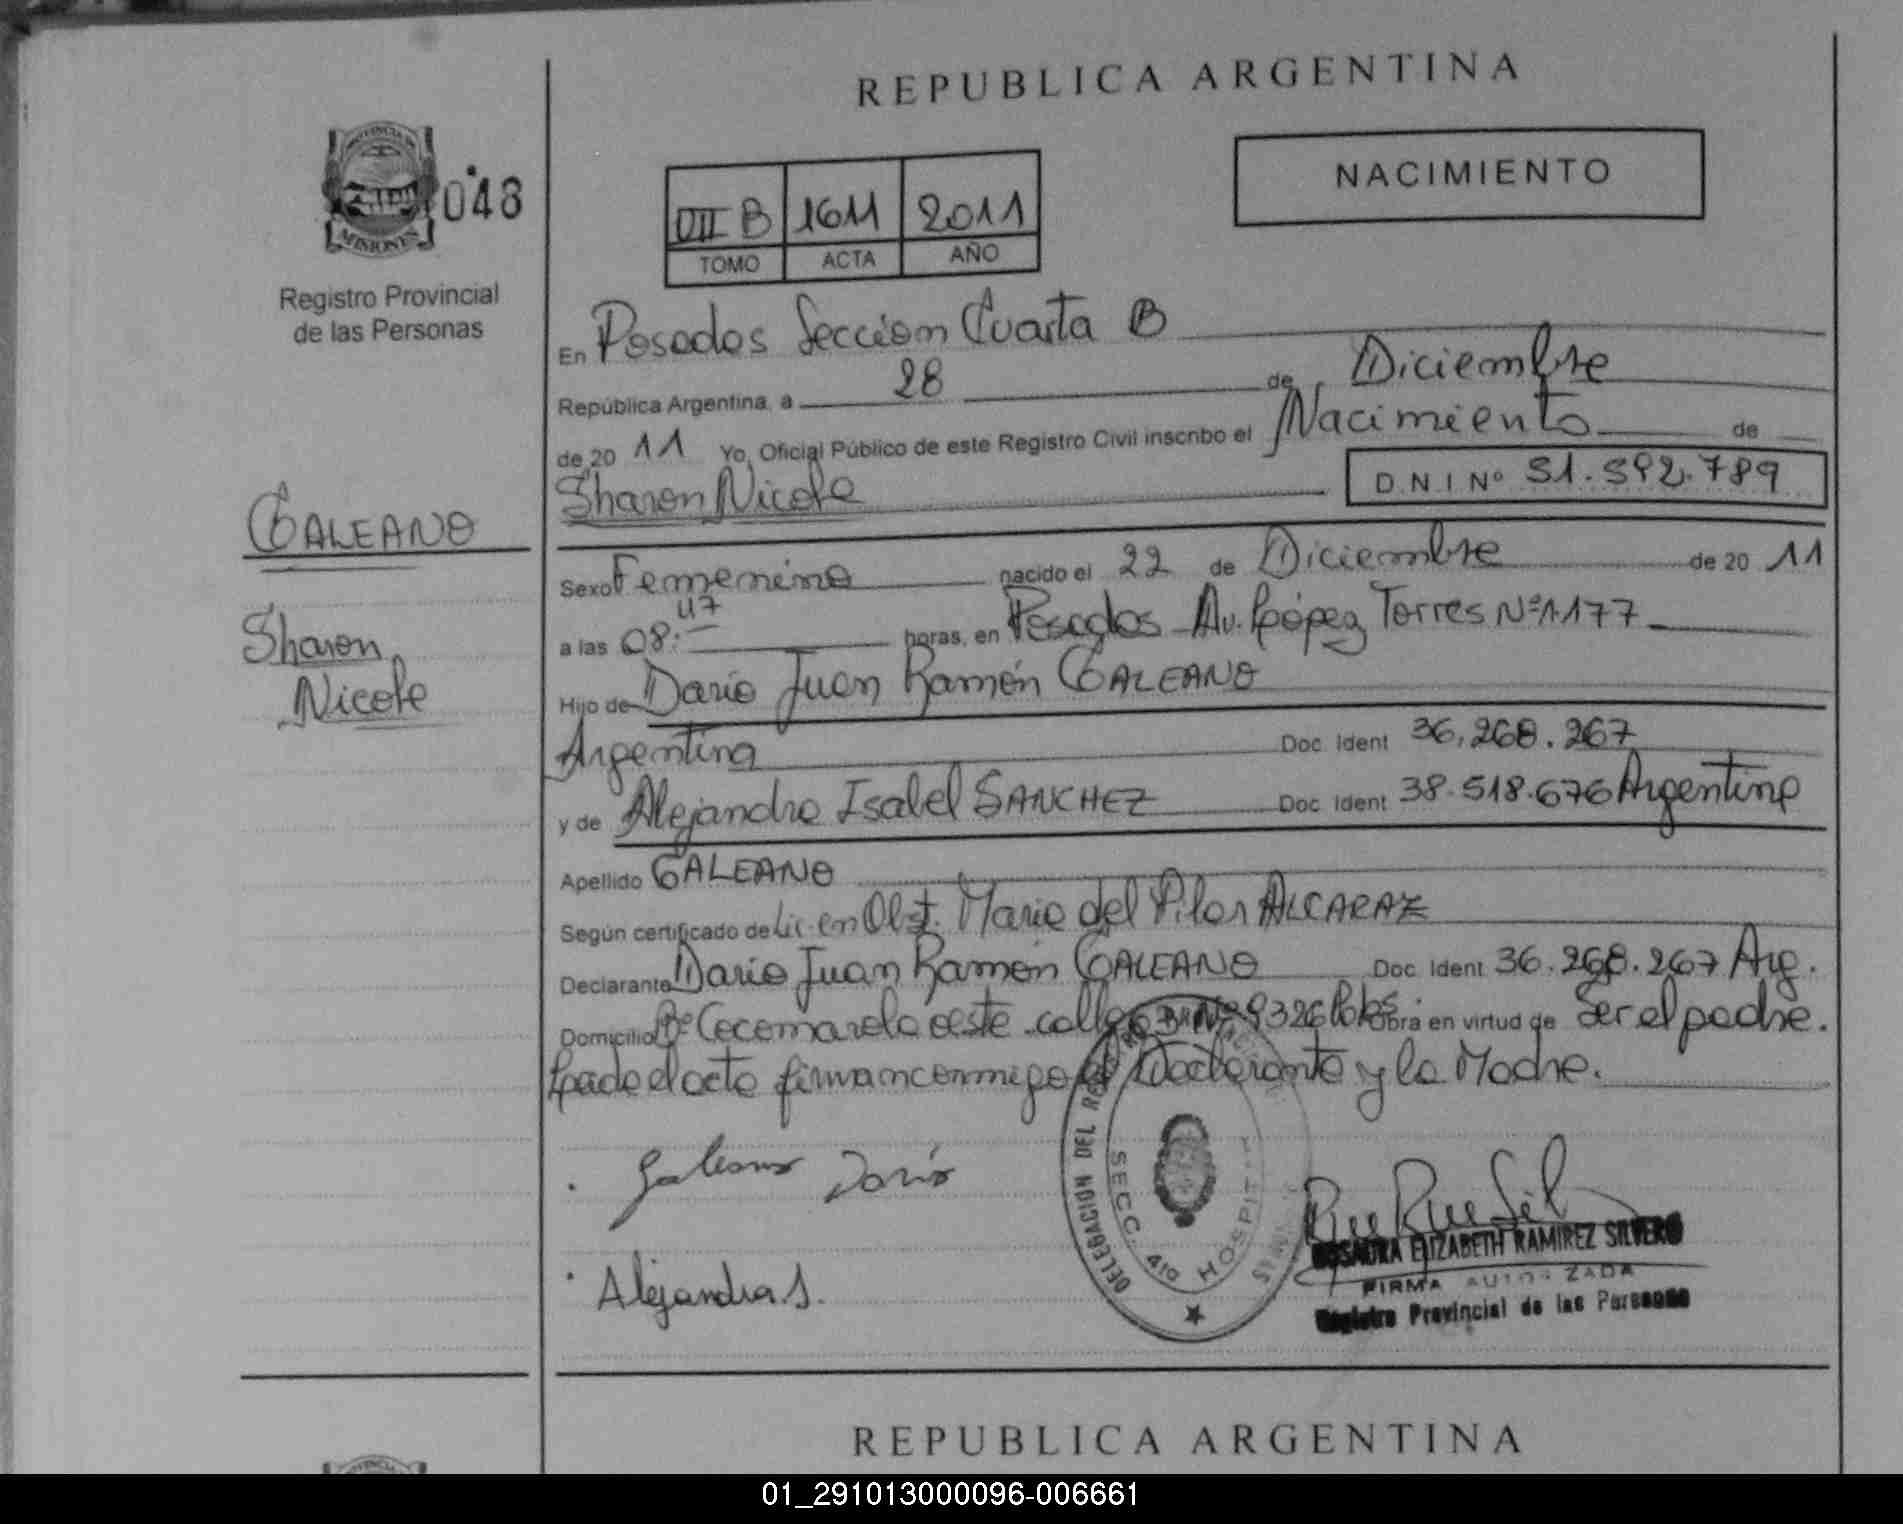 REPUBLICA ARGENTINA
PROVINCIA DE
MISIONES
048
Registro Provincial
de las Personas
NACIMIENTO
VIII B 1611 2011
TOMO ACTA AÑO
En Posadas Seccion Cuarta B
República Argentina, a 28 de Diciembre
de 20 11 Yo, Oficial Público de este Registro Civil inscribo el Nacimiento de
Sharon Nicole D.N.I Nº 51.592.789
GALEANO
Sharon
Nicole
Sexo Femenino nacido el 22 de Diciembre de 20 11
a las 08:47 horas, en Posadas Av. López Torres Nº1177
Hijo de Darío Juan Ramón GALEANO
Argentina Doc. Ident 36.268.267
y de Alejandra Isabel SANCHEZ Doc. Ident 38.518.676 Argentina
Apellido GALEANO
Según certificado de Lic. en Obst. Maria del Pilar ALCARAZ
Declarante Darío Juan Ramón GALEANO Doc. Ident 36.268.267 Arg.
Domicilio Bº Cocomarola oeste calle Nº 9326 Obra en virtud de Ser el padre.
Leada el acta firman conmigo el Declarante y la Madre.
Galeano Darío
Alejandra S.
DELEGACION DEL
SECC. 4ta HOSPITAL
ROSAURA ELIZABETH RAMIREZ SILVERO
FIRMA AUTORIZADA
Registro Provincial de las Personas
REPUBLICA ARGENTINA
01_291013000096-006661